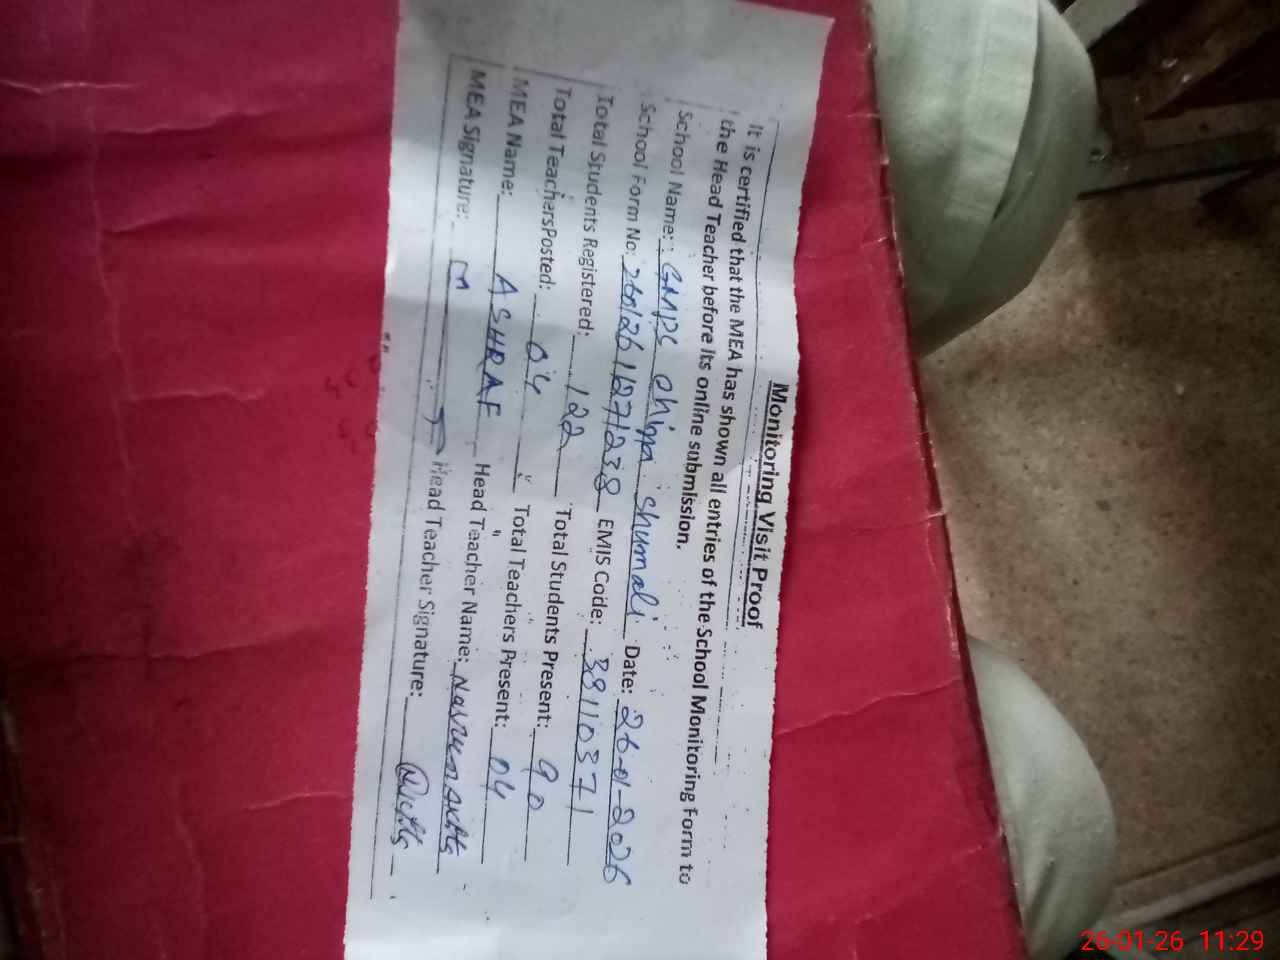 Monitoring Visit Proof
It is certified that the MEA has shown all entries of the School Monitoring Form to
the Head Teacher before its online submission.
School Name: GMPS Shumali Date: 26-01-2026
School Form No: 260126 1127 1238 EMIS Code: 38110371
Total Students Registered: 122 Total Students Present: 90
Total TeachersPosted: 04 Total Teachers Present: 04
MEA Name: ASHRAF Head Teacher Name:
MEA Signature: Head Teacher Signature:
26-01-26 11:29